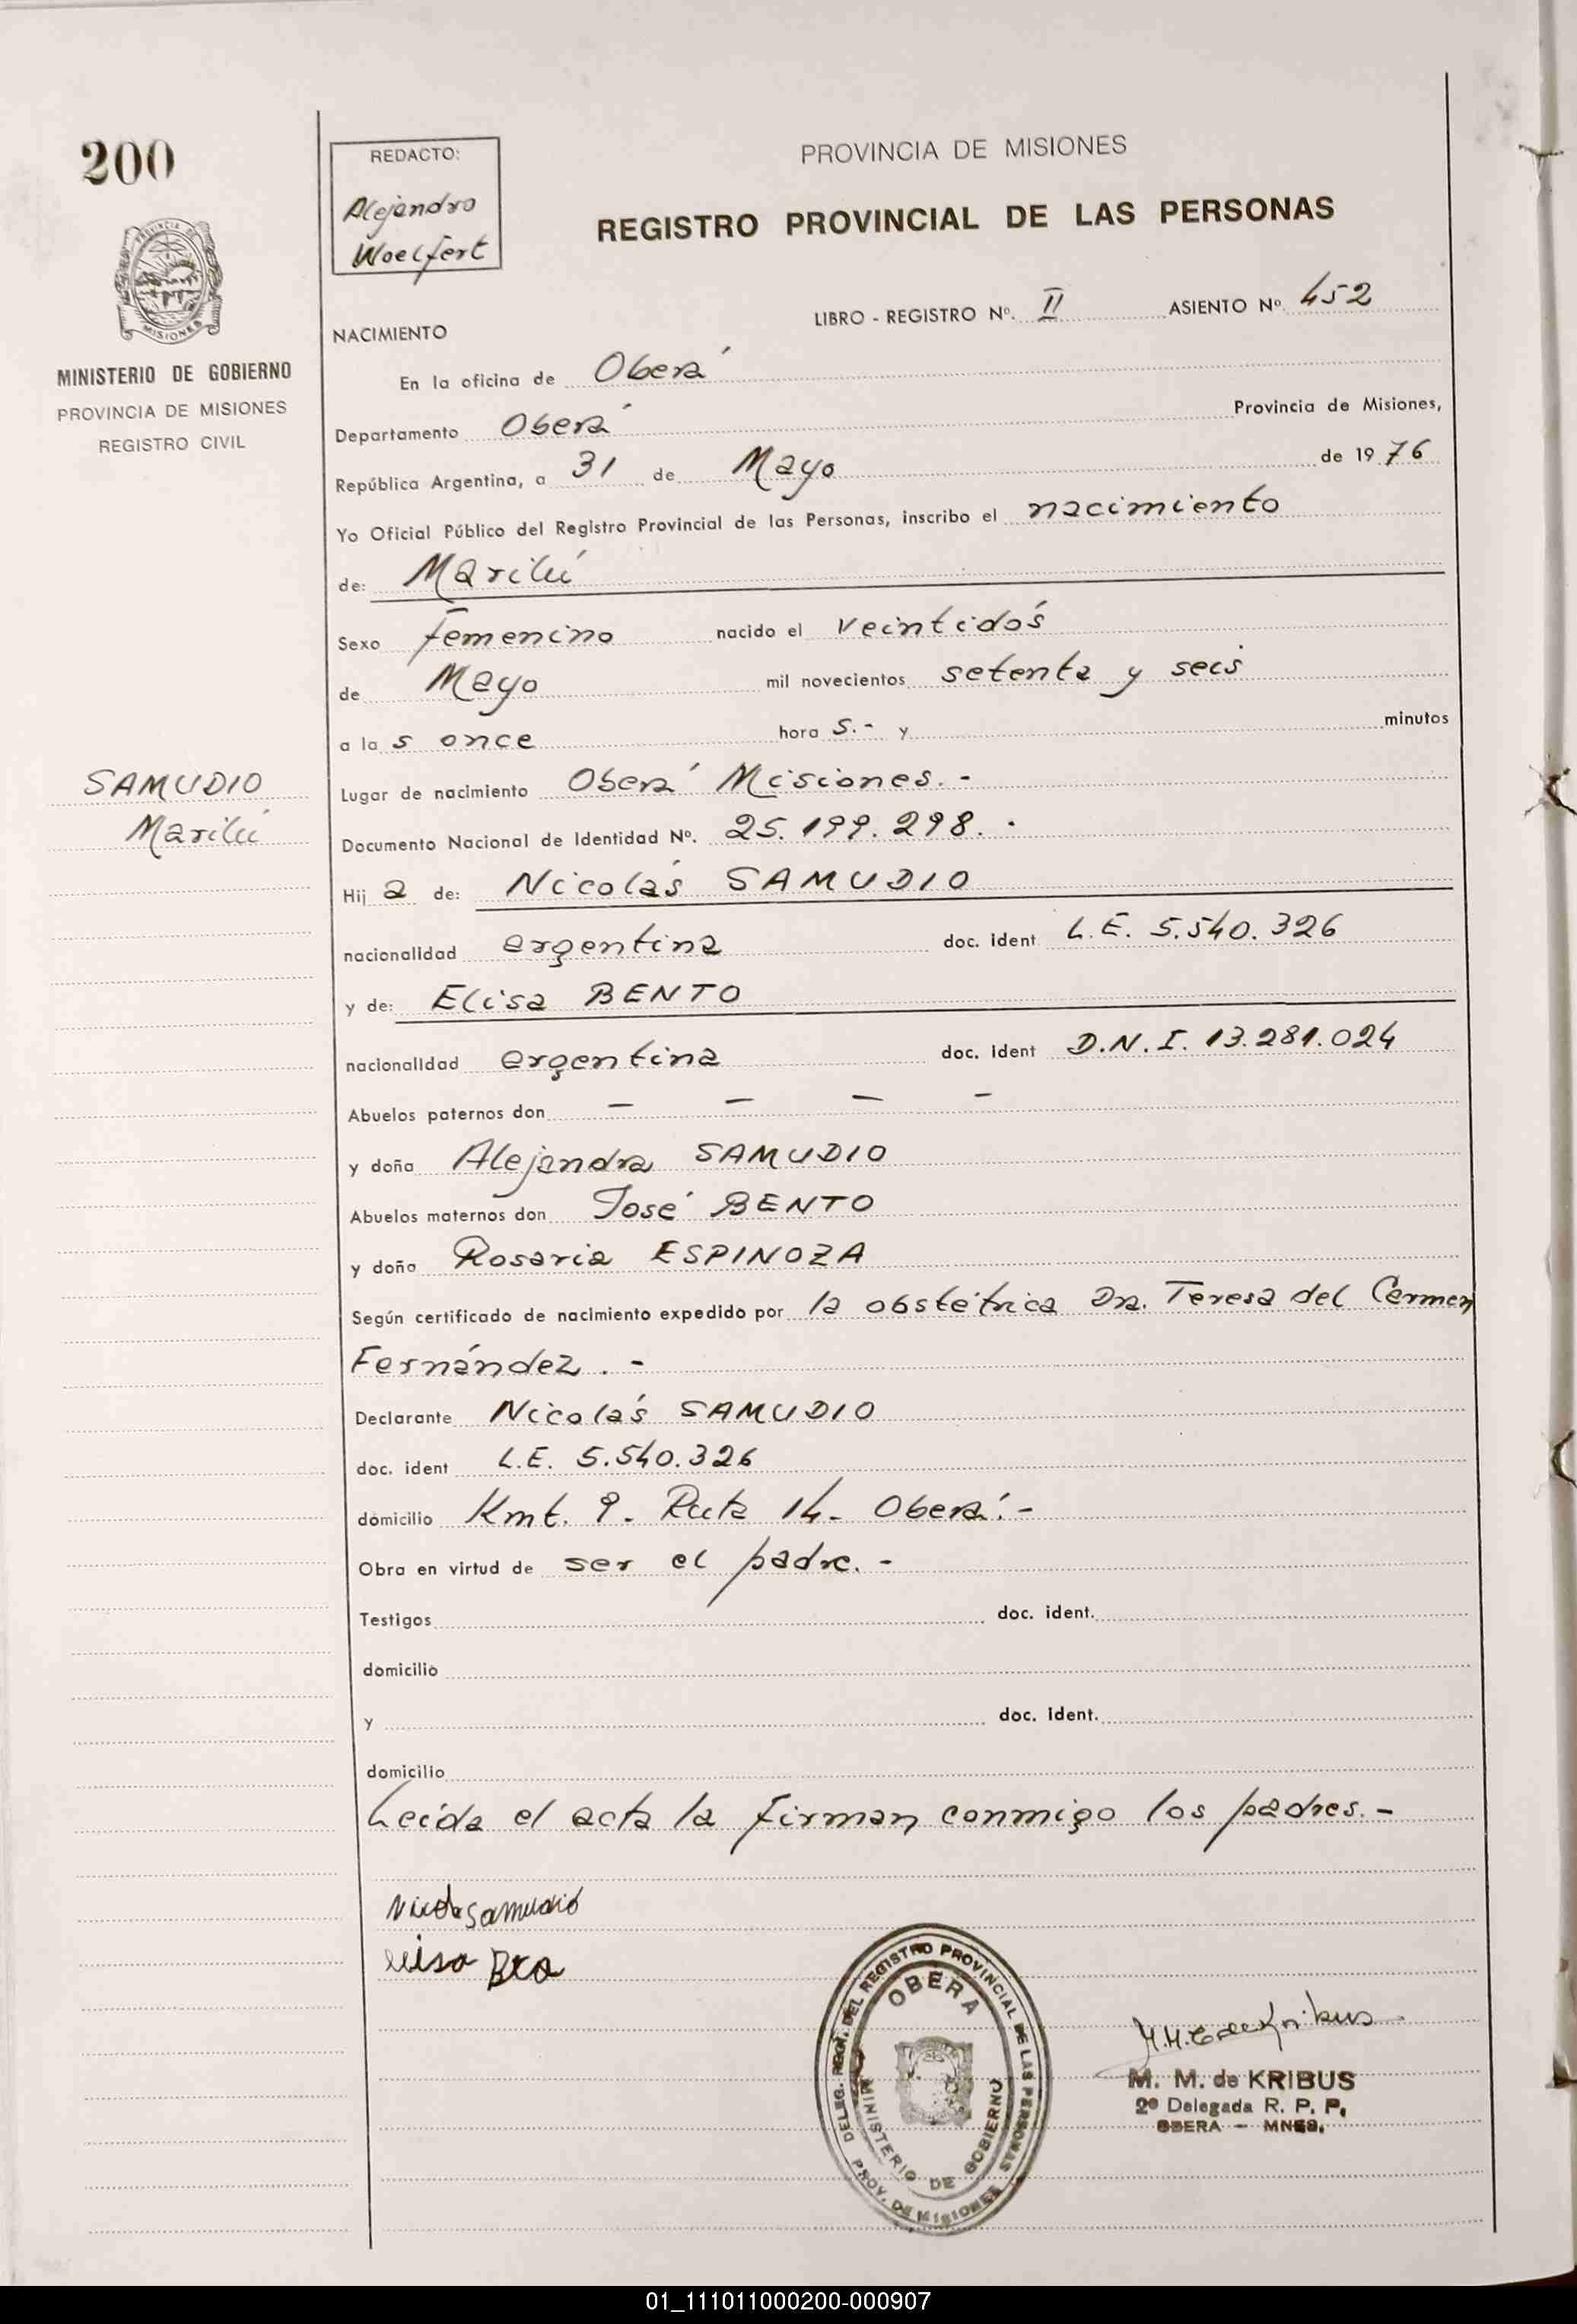 200
REDACTO:
Alejandro
Woelfert
PROVINCIA DE MISIONES
REGISTRO PROVINCIAL DE LAS PERSONAS
MISIONES
MINISTERIO DE GOBIERNO
PROVINCIA DE MISIONES
REGISTRO CIVIL
LIBRO - REGISTRO Nº. II ASIENTO Nº. 452
NACIMIENTO
En la oficina de Oberá
Departamento Oberá Provincia de Misiones,
República Argentina, a 31 de Mayo de 1976
Yo Oficial Público del Registro Provincial de las Personas, inscribo el nacimiento
de: Marilú
Sexo femenino nacido el veintidós
de Mayo mil novecientos setenta y seis
a la s once hora s.- y minutos
SAMUDIO
Marilú
Lugar de nacimiento Oberá Misiones.-
Documento Nacional de Identidad Nº. 25.199.298.
Hij a de: Nicolás SAMUDIO
nacionalidad argentina doc. ident L.E. 5.540.326
y de: Elisa BENTO
nacionalidad argentina doc. ident D.N.I. 13.281.024
Abuelos paternos don — — — —
y doña Alejandra SAMUDIO
Abuelos maternos don José BENTO
y doña Rosaria ESPINOZA
Según certificado de nacimiento expedido por la obstétrica Dra. Teresa del Carmen
Fernández.-
Declarante Nicolás SAMUDIO
doc. ident L.E. 5.540.326
domicilio Kmt. 9. Ruta 14. Oberá.-
Obra en virtud de ser el padre.-
Testigos doc. ident.
domicilio
y doc. ident.
domicilio
Leída el acta la firman conmigo los padres.-
DELEG. REGN. DEL REGISTRO PROVINCIAL DE LAS PERSONAS
OBERA
MINISTERIO DE GOBIERNO
PROV. DE MISIONES
M. M. de KRIBUS
2ª Delegada R. P. P.
OBERA - MNES.
01_111011000200-000907